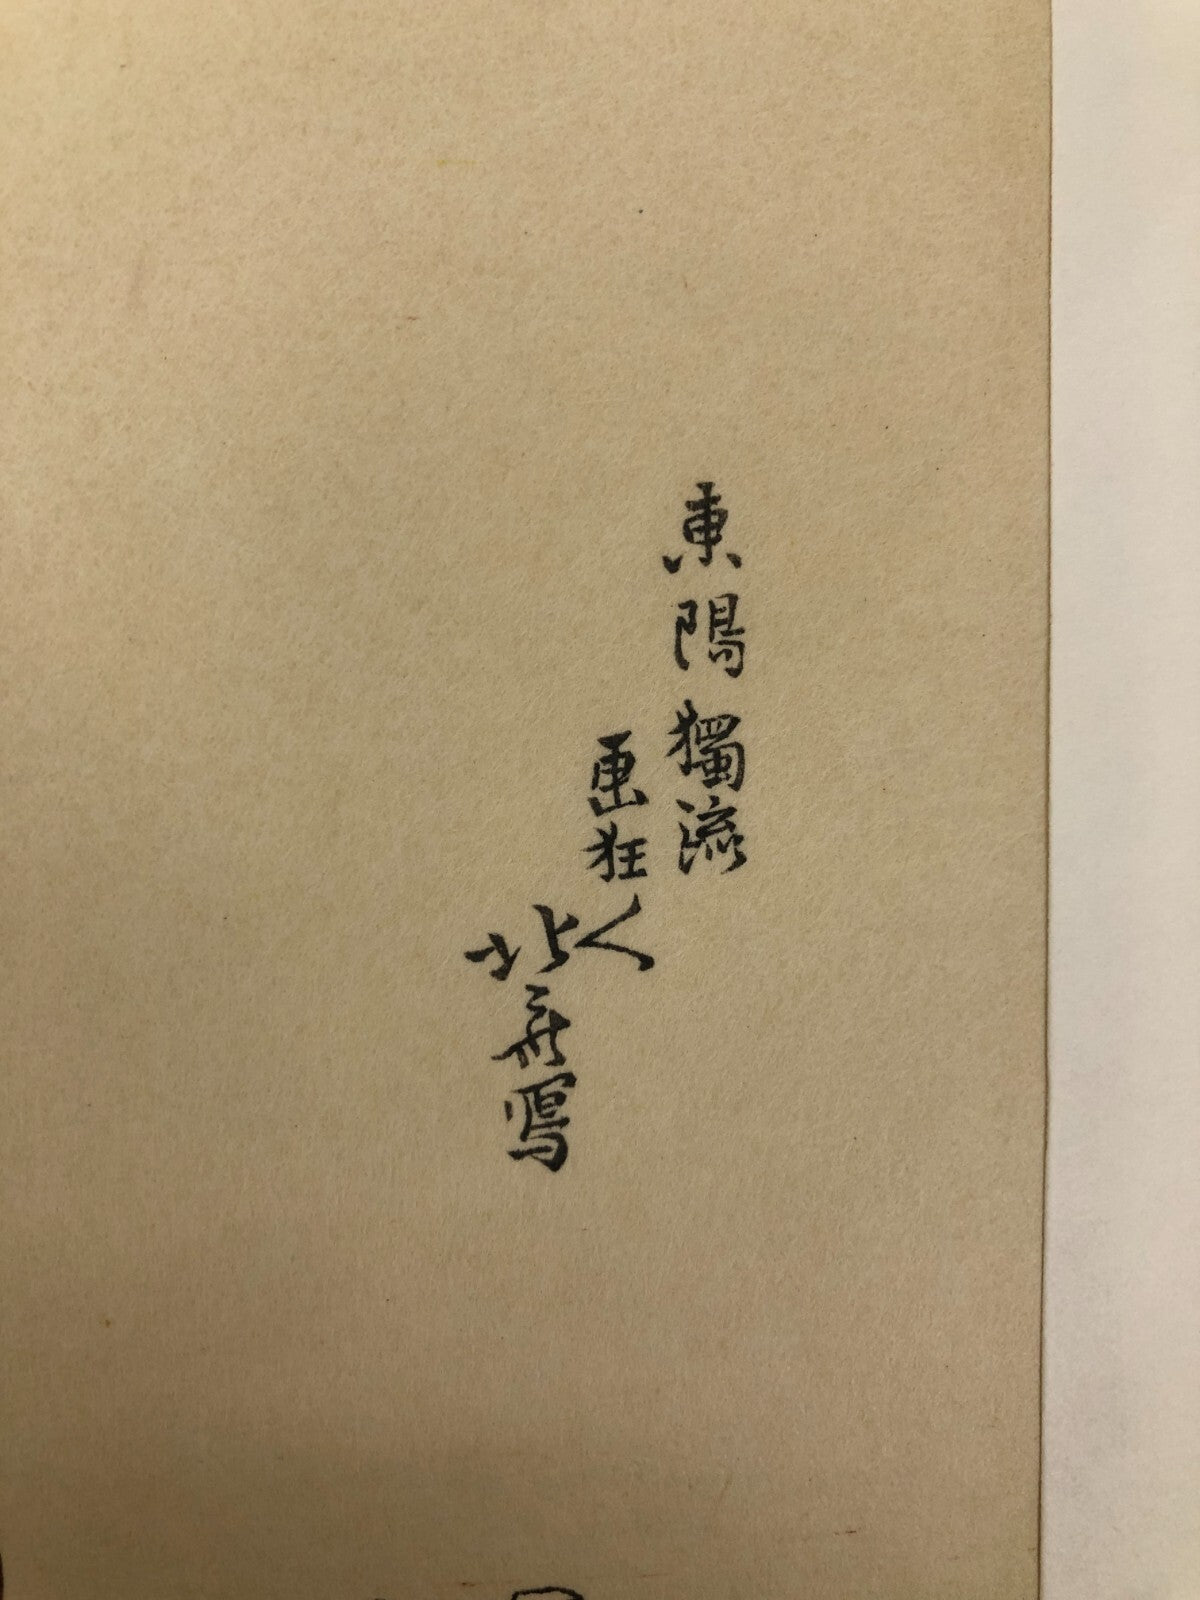 東陽獨流
画狂人
北斎寫